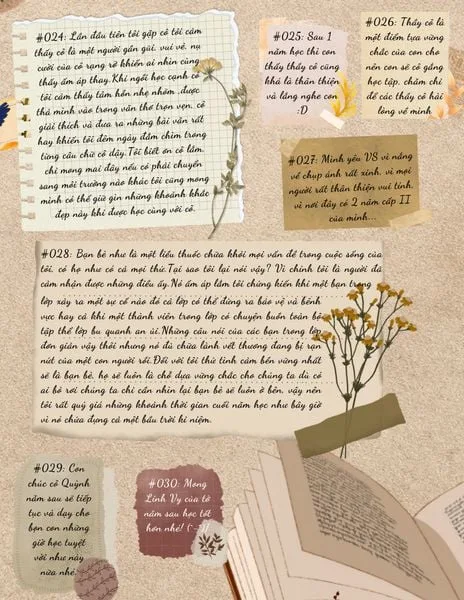 #024: Lần đầu tiên tôi gặp cô tôi cảm
thấy cô là một người gần gũi, vui vẻ, nụ
cười của cô rạng rỡ khiến ai nhìn cũng
thấy ấm áp thay. Khi ngồi học cạnh cô
tôi cảm thấy tâm hồn nhẹ nhõm ,được
thả mình vào trong văn thơ trọn vẹn, cô
giải thích và đưa ra những bài văn rất
hay khiến tôi đêm ngày đắm chìm trong
từng câu chữ cô dạy.Tôi biết ơn cô lắm,
chỉ mong mai đây nếu có phải chuyển
sang môi trường nào khác tôi cũng mong
mình có thể giữ gìn những khoảnh khắc
đẹp này khi được học cùng với cô.
#025: Sau 1
năm học thì con
thấy thầy cô cũng
khá là thân thiện
và lắng nghe con
:D
#026: Thầy cô là
một điểm tựa vững
chắc của con nên
con sẽ cố gắng
học tập, chăm chỉ
để các thầy cô hài
lòng về mình
#027: Mình yêu V8 vì nắng
về chụp ảnh rất xinh, vì mọi
người rất thân thiện vui tính,
vì nơi đây có 2 năm cấp II
của mình...
#028: Bạn bè như là một liều thuốc chữa khỏi mọi vấn đề trong cuộc sống của
tôi, có họ như có cả mọi thứ.Tại sao tôi lại nói vậy? Vì chính tôi là người đã
cảm nhận được những điều ấy.Nó ấm áp lắm tôi chứng kiến khi một bạn trong
lớp xảy ra một sự cố nào đó cả lớp có thể đứng ra bảo vệ và bênh
vực hay cả khi một thành viên trong lớp có chuyện buồn toàn bộ
tập thể lớp bu quanh an ủi.Những câu nói của các bạn trong lớp
đơn giản vậy thôi nhưng nó đã chữa lành vết thương đang bị rạn
nứt của một con người rồi.Đối với tôi thứ tình cảm bền vững nhất
sẽ là bạn bè, họ sẽ luôn là chỗ dựa vững chắc cho chúng ta dù có
ai bỏ rơi chúng ta chỉ cần nhìn lại bạn bè sẽ luôn ở bên, vậy nên
tôi rất quý giá những khoảnh thời gian cuối năm học như bây giờ
vì nó chứa đựng cả một bầu trời kỉ niệm.
#029: Con
chúc cô Quỳnh
năm sau sẽ tiếp
tục và dạy cho
bọn con những
giờ học tuyệt
vời như này
nữa nhé.
#030: Mong
Linh Vy của tớ
năm sau học tốt
hơn nhé!